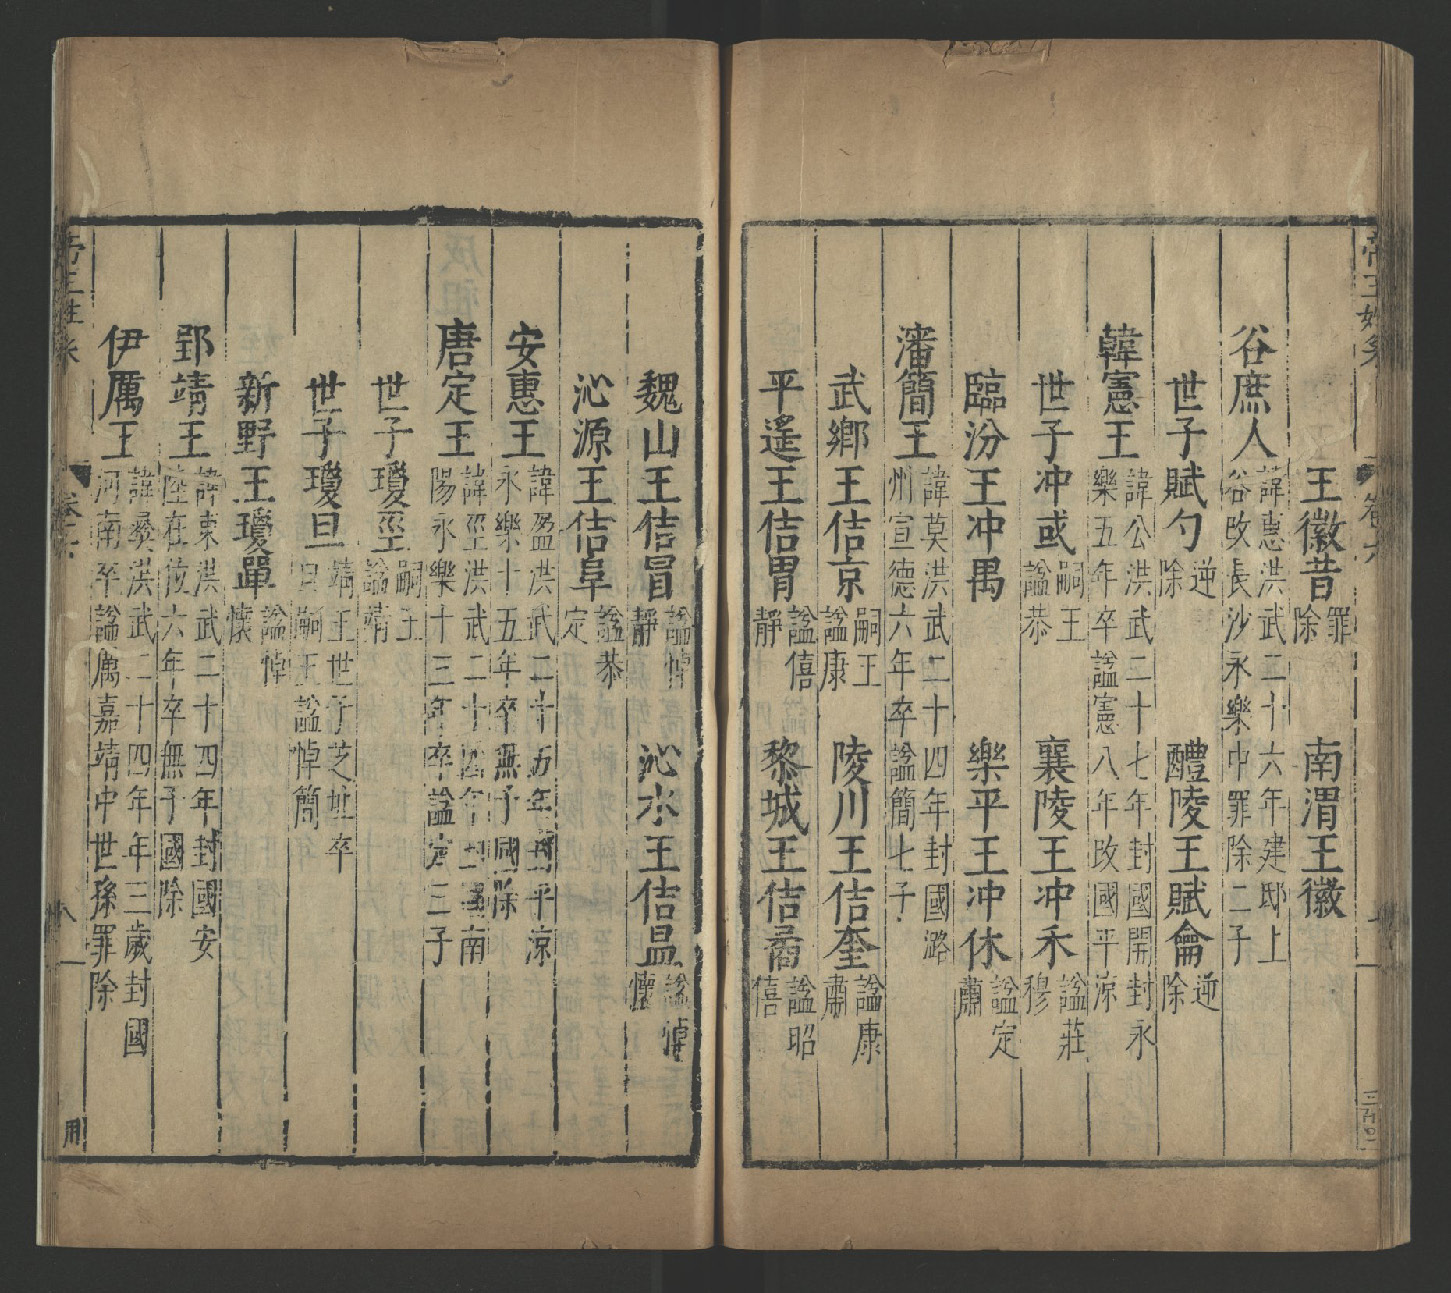 王徽昔 罪除 南渭王徽
谷庶人 諱惠洪武二十六年建邸上谷改長沙永樂中罪除二子
世子賦勺 逆除 醴陵王賦龠 逆除
韓憲王 諱公洪武二十七年封國開封永樂五年卒謚憲八年改國平涼
世子冲或 嗣王謚恭 襄陵王冲禾 謚莊穆
臨汾王冲禺 樂平王冲休 謚定肅
瀋簡王 諱莫洪武二十四年封國潞州宣德六年卒謚簡七子
武鄉王佶京 嗣王謚康 陵川王佶奎 謚康肅
平遙王佶胃 謚僖靜 黎城王佶矞 謚昭僖
魏山王佶冒 謚悼靜 沁水王佶昷 謚悼懷
沁源王佶阜 謚恭定
安惠王 諱盈洪武二十五年國平涼永樂十五年卒無子國除
唐定王 諱巠洪武二十四年封國南陽永樂十三年卒謚定三子
世子瓊巠 嗣王謚靖
世子瓊旦 靖王世子芝址卒旦嗣王謚悼簡
新野王瓊單 謚悼懷
郢靖王 諱東洪武二十四年封國安陸在位六年卒無子國除
伊厲王 諱彝洪武二十四年年三歲封國河南卒謚厲嘉靖中世孫罪除
卷六
八
用